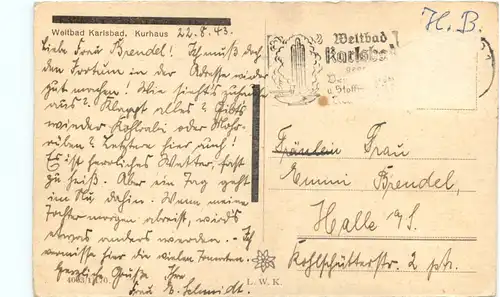 Weltbad Karlsbad. Kurhaus 22.8.43.
Liebe Frau Brendel! Ich muß doch
den Irrtum in der Adresse wieder
gut machen! Wie sieht's zuhause
aus? Klappt alles? Gibts
wieder Kohlrabi oder Mohr-
rüben? Letztere hier auch!
Es ist herrliches Wetter, fast
zu heiß. Aber ein Tag geht
im Nu dahin. Wenn meine
Tochter morgen abreist, wird's
etwas anders werden. - Ich
vermisse hier die vielen Tomaten.
Herzliche Grüße Ihre
Frau E. Schmidt.
L. W. K.
H. B.
Weltbad
Karlsbad
u. Stoff
Fräulein Frau
Emmi Brendel,
Halle a/S.
Kohlschütterstr. 2 ptr.